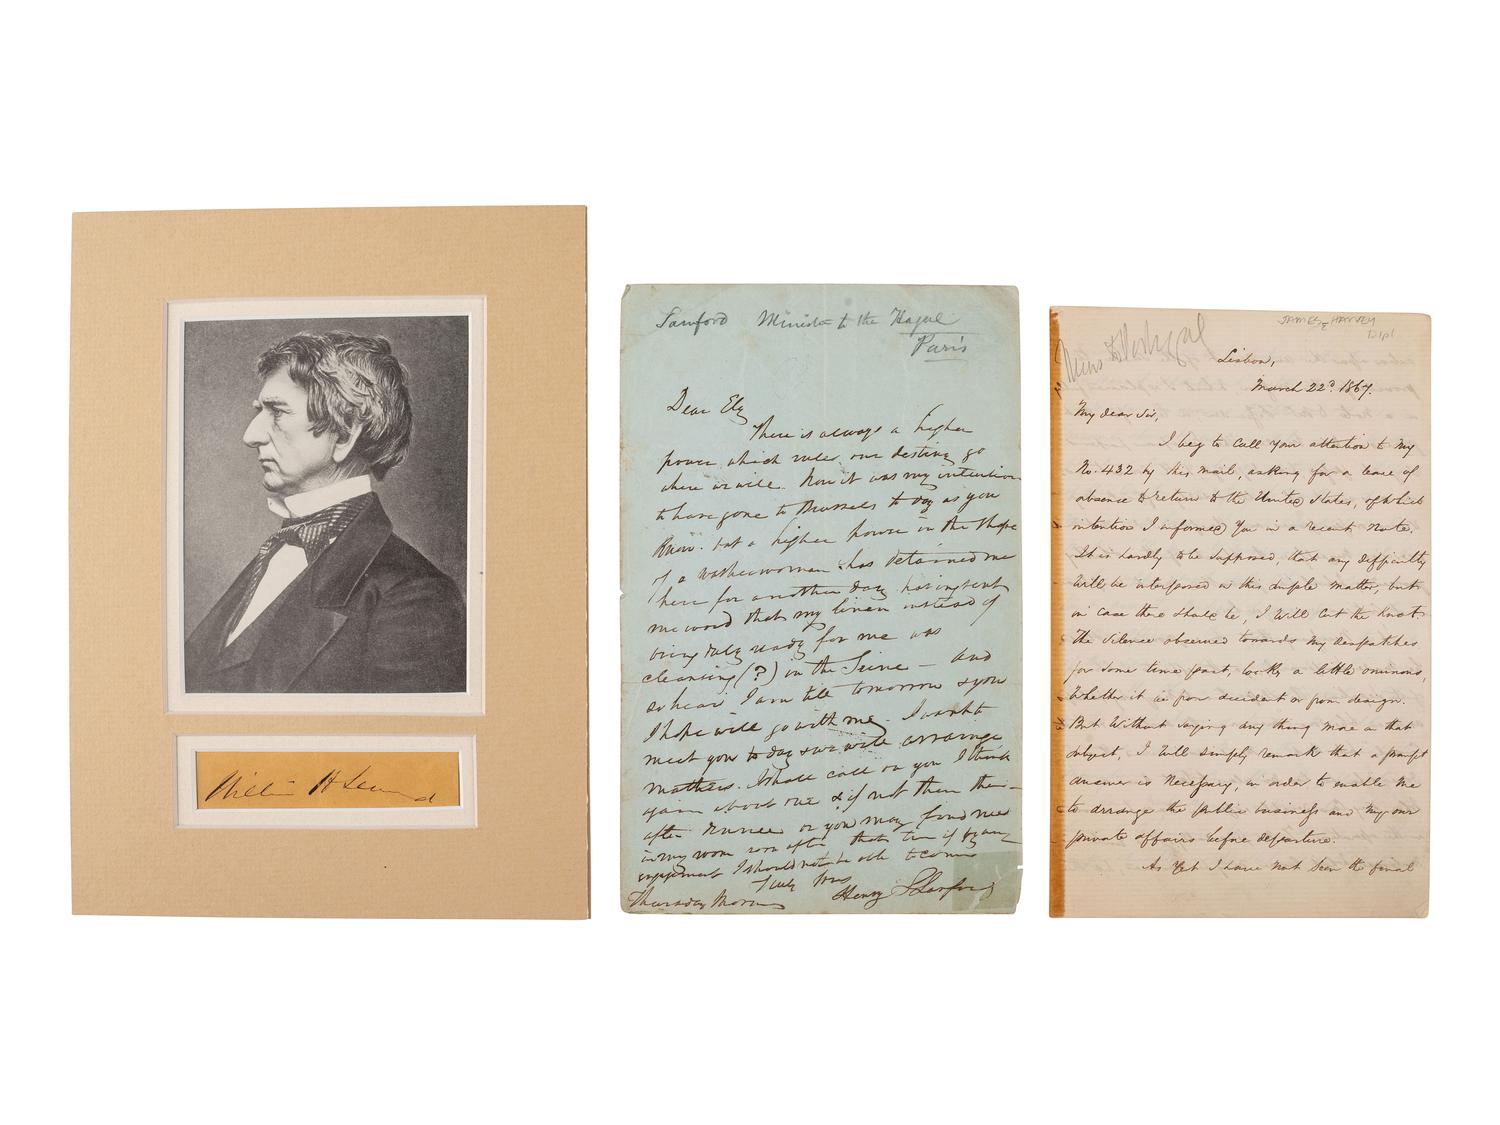 William H Seward
Sanford Minister to the Hague
Paris
Dear Ely
There is always a higher
power which rules our destiny go
where we will. Now it was my intention
to have gone to Brussels to day as you
know. but a higher power in the shape
of a washerwoman has detained me
here for another day having sent
me word that my linen instead of
being duly ready for me was
cleansing (?) in the Seine — and
so here I am till tomorrow & you
I hope will go with me. I want to
meet you to day & we will arrange
matters. I shall call on you I think
again about one & if not then then
after dinner or you may find me
in my room soon after that time if by any
engagement I should not be able to come
Truly Yours
Thursday Morn Henry S Sanford
Mins to Portugal
JAMES HARVEY
Dipl
Lisbon,
March 22d 1867.
My dear Sir,
I beg to call your attention to my
No. 432 by this mail, asking for a leave of
absence to return to the United States, of which
intention I informed you in a recent note.
It is hardly to be supposed, that any difficulty
will be interposed in this simple matter, but
in case there should be, I will cut the knot.
The silence observed towards my despatches
for some time past, looks a little ominous,
whether it is from accident or from design.
But without saying any thing more on that
subject, I will simply remark that a prompt
answer is necessary, in order to enable me
to arrange the public business and my own
private affairs before departure.
As yet I have not seen the final